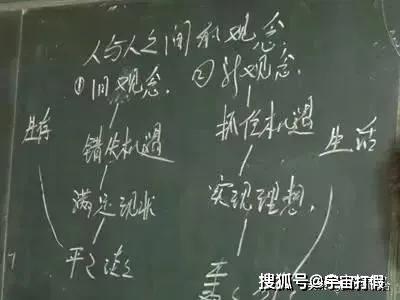 人与人之间的观念.
①旧观念. ②新观念.
生存
错失机遇 抓住机遇 生活
满足现状 实现理想.
平々淡々
搜狐号@宇宙打假